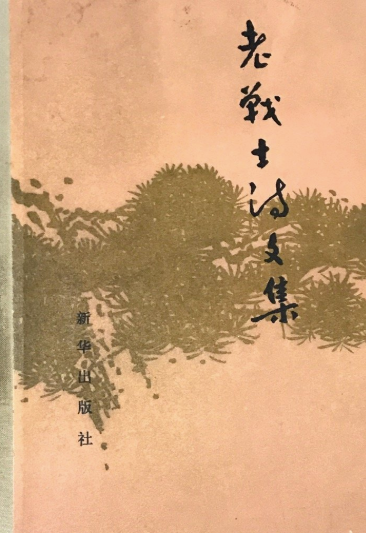 老战士诗文集
新华出版社